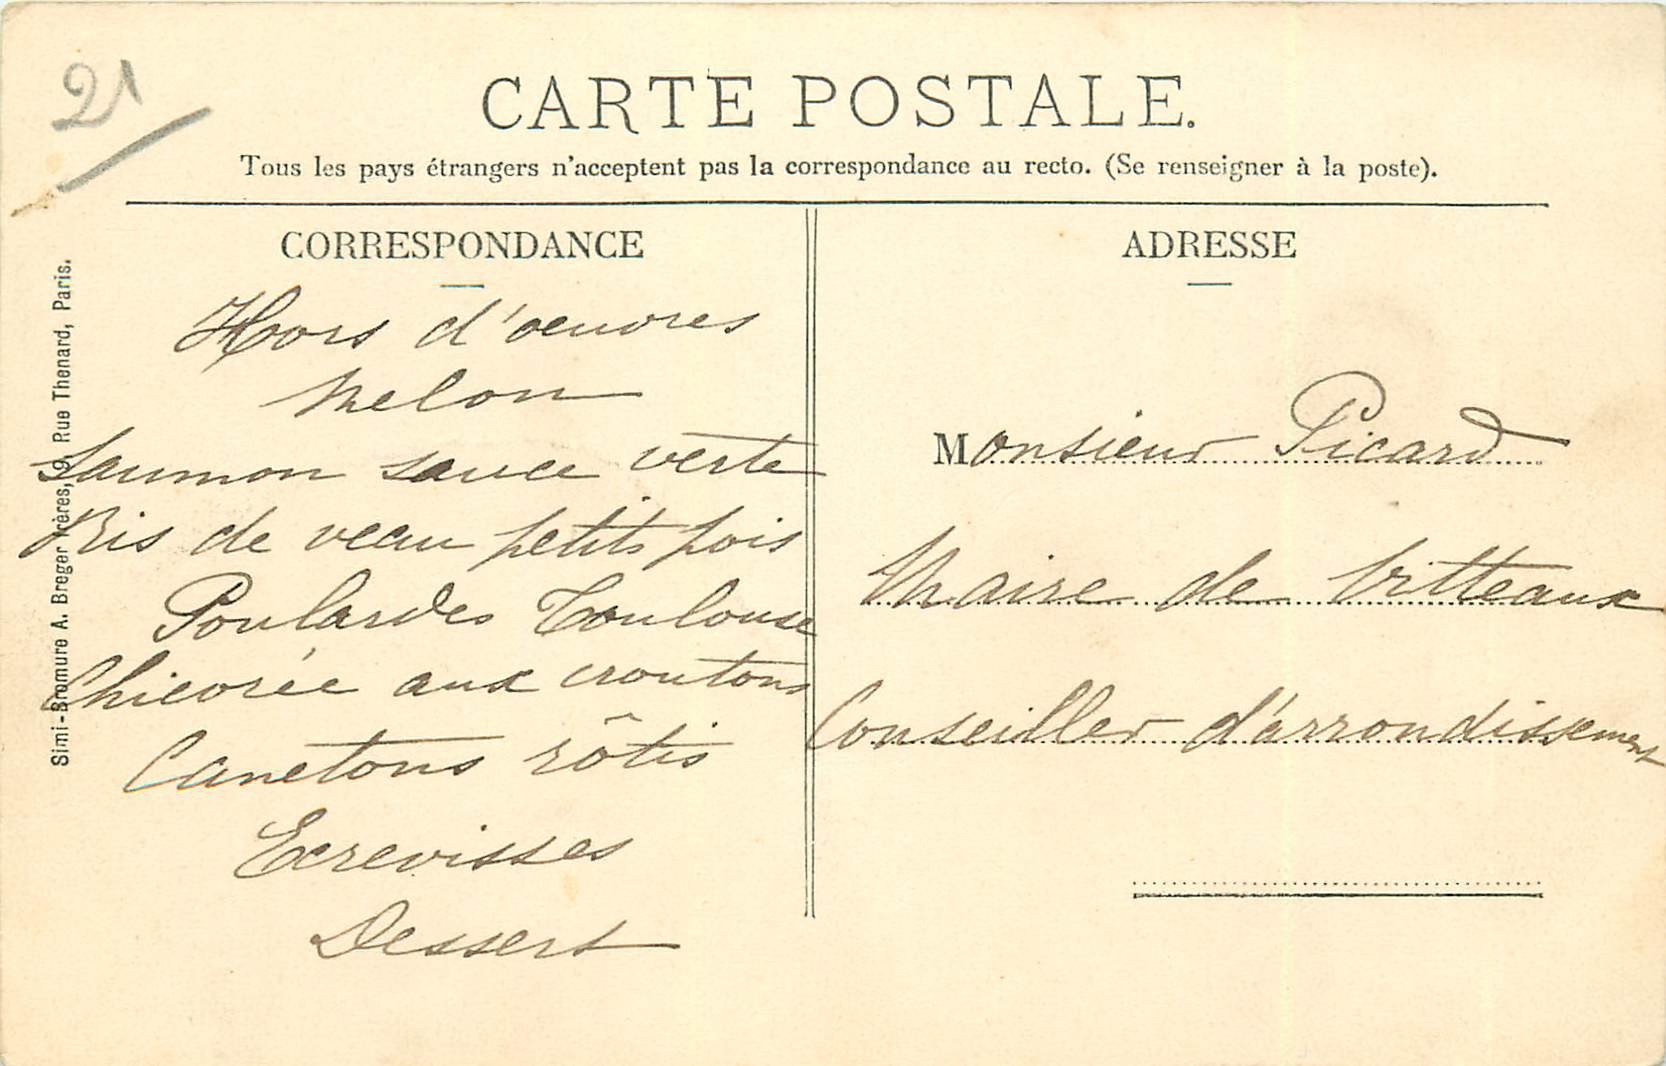 21
CARTE POSTALE.
Tous les pays étrangers n'acceptent pas la correspondance au recto. (Se renseigner à la poste).
CORRESPONDANCE
Hors d'oeuvres
Melon
Saumon sauce verte
Ris de veau petits pois
Poulardes Toulouse
Chicorée aux croutons
Canetons rôtis
Ecrevisses
Dessert
ADRESSE
Monsieur Picard
Maire de Vitteaux
Conseiller d'arrondissement
Simi-Bromure A. Breger frères, 9, Rue Thenard, Paris.